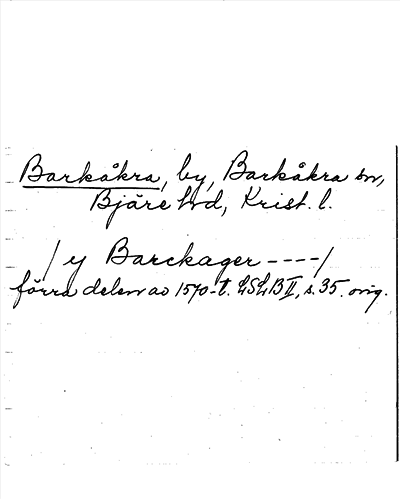 Barkåkra, by, Barkåkra sn,
Bjäre hd, Krist. l.
/ y Barckager ----/
förra delen av 1570-t. LSLB II, s. 35. orig.